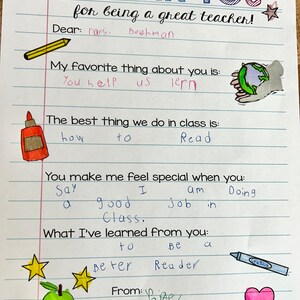 for being a great teacher!
Dear: mrs. Boohman
My favorite thing about you is:
You help us lern
The best thing we do in class is:
how to Read
You make me feel special when you:
Say I am Doing
a good job in
Class.
What I've learned from you:
to Be a
Beter Reader
From: